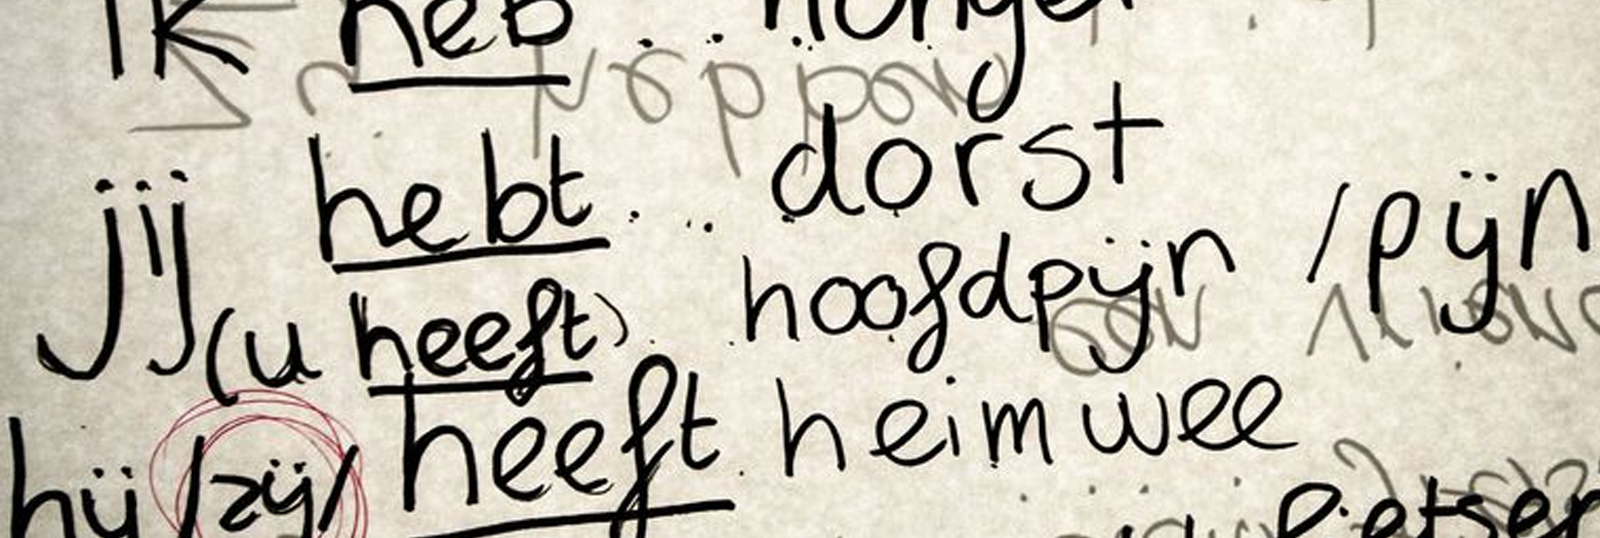 Ik heb ... honger
jij hebt ... dorst
(u heeft) hoofdpijn / pijn
hij /zij/ heeft heimwee